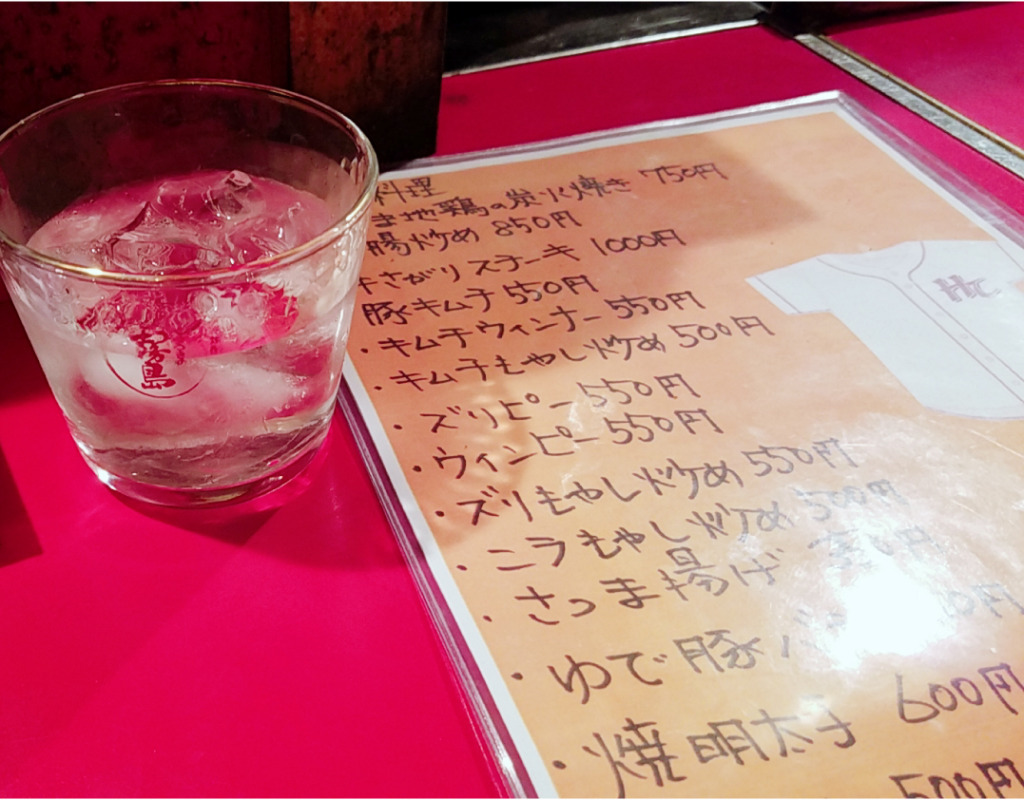 霧島
料理
地鶏の炭火焼き 750円
腸炒め 850円
さがりステーキ 1000円
豚キムチ 550円
・キムチウィンナー 550円
・キムチもやし炒め 500円
・ズリピー 550円
・ウィンピー 550円
・ズリもやし炒め 550円
・ニラもやし炒め 500円
・さつま揚げ 円
・ゆで豚 円
・焼明太子 600円
500円